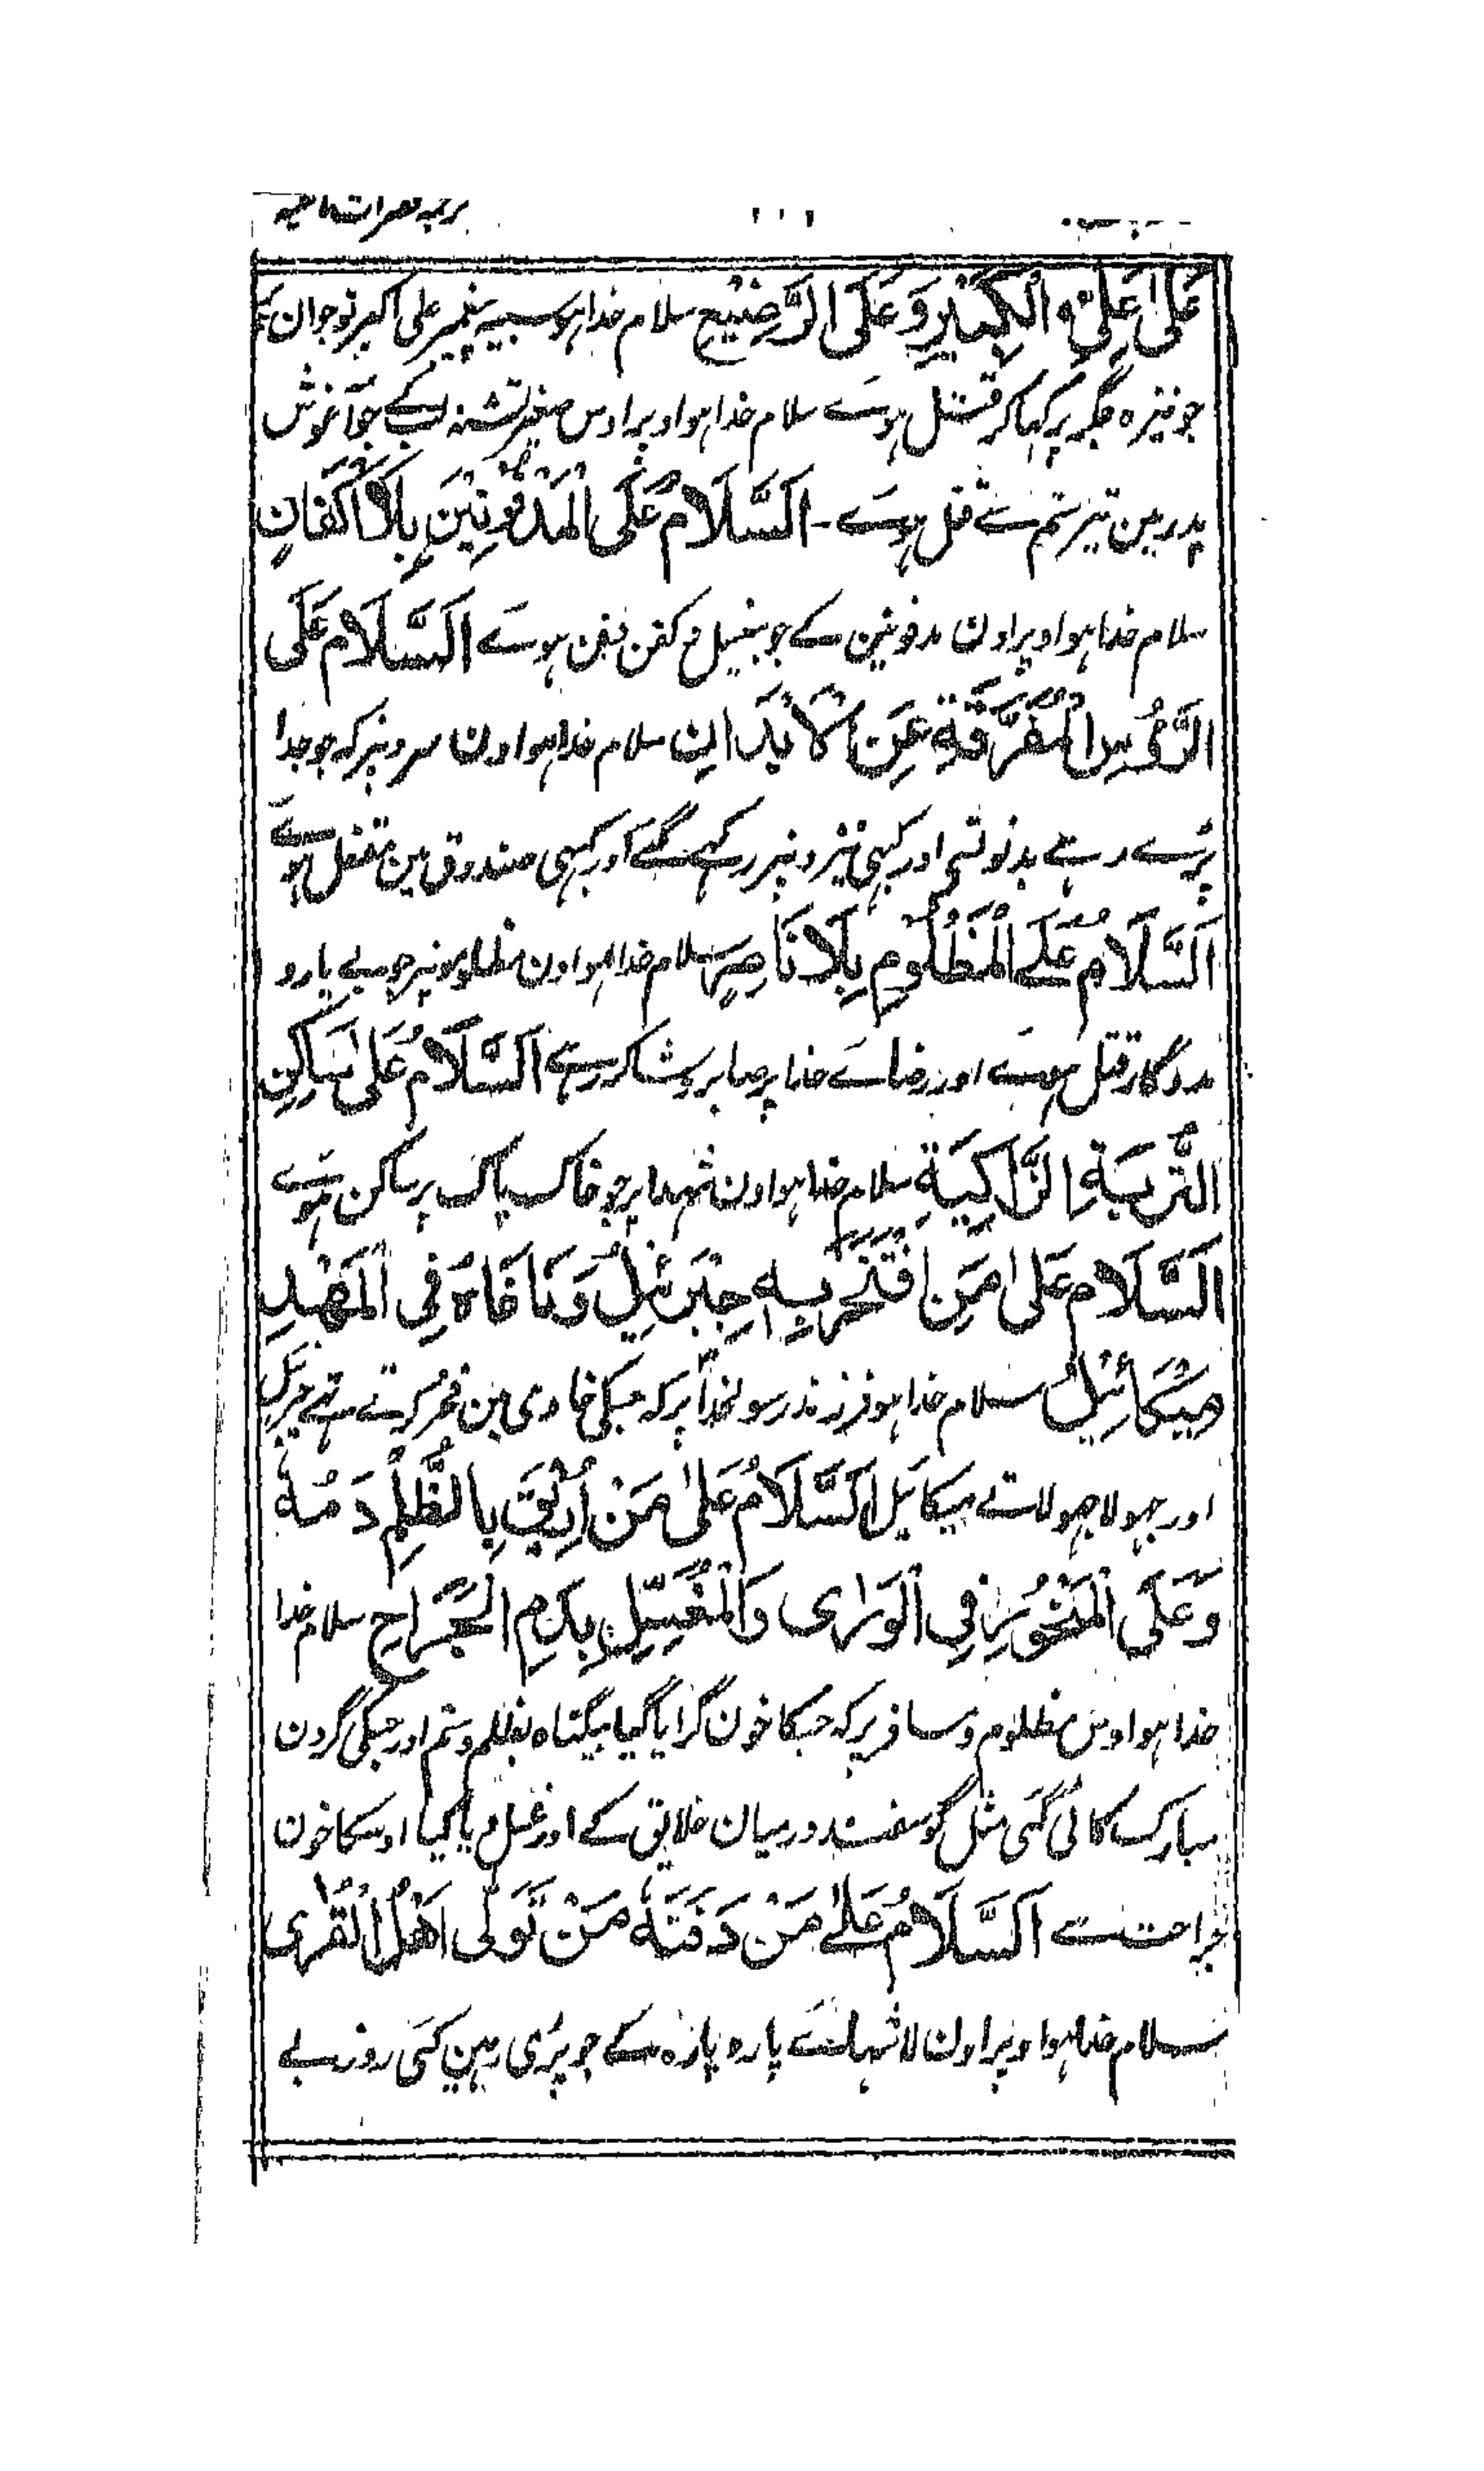 عَلیٰ عَلِیِّ الْکَبِیْرِ وَعَلَی الرَّضِیْعِ سلام خدا ہو شبیہ پیغمبر علی اکبر نوجوان پر
جو نیزہ جگر پر کہا کر قتل ہوے سلام خدا ہو اوپر اوس صغیر تشنہ لب کے جو آغوش
پدر مین تیر ستم سے قتل ہوے ـ اَلسَّلَامُ عَلَی الْمَدْفُوْنِیْنَ بِلَا اَکْفَانٍ
سلام خدا ہو اوپر اون مدفونین کے جو بیغسل و کفن دفن ہوے اَلسَّلَامُ عَلَی
الرَّؤُسِ الْمُفَرَّقَةِ عَنِ الْاَبْدَانِ سلام خدا ہو اون سرونپر کہ جو جدا
پڑے رہے بدنونسے اور کبہی نیزونپر رکہے گئے اور کبہی صندوق مین مقفل ہوے
اَلسَّلَامُ عَلَے الْمَظْلُوْمِ بِلَا نَاصِرٍ سلام خدا ہو اون مظلومونپر جو بے یارو
مددگار قتل ہوے اور رضاے خدا پر صابر و شاکر رہے اَلسَّلَامُ عَلیٰ سَاکِنِ
التُّرْبَةِ الزَّاکِیَةِ سلام خدا ہو اون شہدا پر جو خاک پاک پر ساکن ہوے
اَلسَّلَامُ عَلیٰ مَنِ افْتَخَرَ بِهٖ جِبْرَئِیْلُ وَنَاغَاهُ فِی الْمَهْدِ
مِیْکَائِیْلُ سلام خدا ہو فرزند رسولخدا پر کہ جسکی خادمی مین فخر کرتے تہے جبرئیل
اور جہولا جہولاتے میکائیل اَلسَّلَامُ عَلیٰ مَنْ اُرِیْقَ بِالظُّلْمِ دَمُهٗ
وَعَلَی الْمَنْحُوْرِ فِی الْوَرٰی وَالْمُغَسَّلِ بِدَمِ الْجَرَاحِ سلام خدا
خدا ہو اوس مظلوم و مسافر پر کہ جسکا خون گرایا گیا بیگناہ بظلم و ستم اور جسکی گردن
مبارک کاٹی گئی مثل گوسفند درمیان خلایق کے اور غسل دیا گیا اوسکا خون
جراحت سے اَلسَّلَامُ عَلے مَنْ دَفَنَهٗ مَنْ تَوَلّٰی اَهْلُ الْقُرٰی
سلام خدا ہو اوپر اون لاشہاے پارہ پارہ کے جو پڑی رہین کئی روز بے